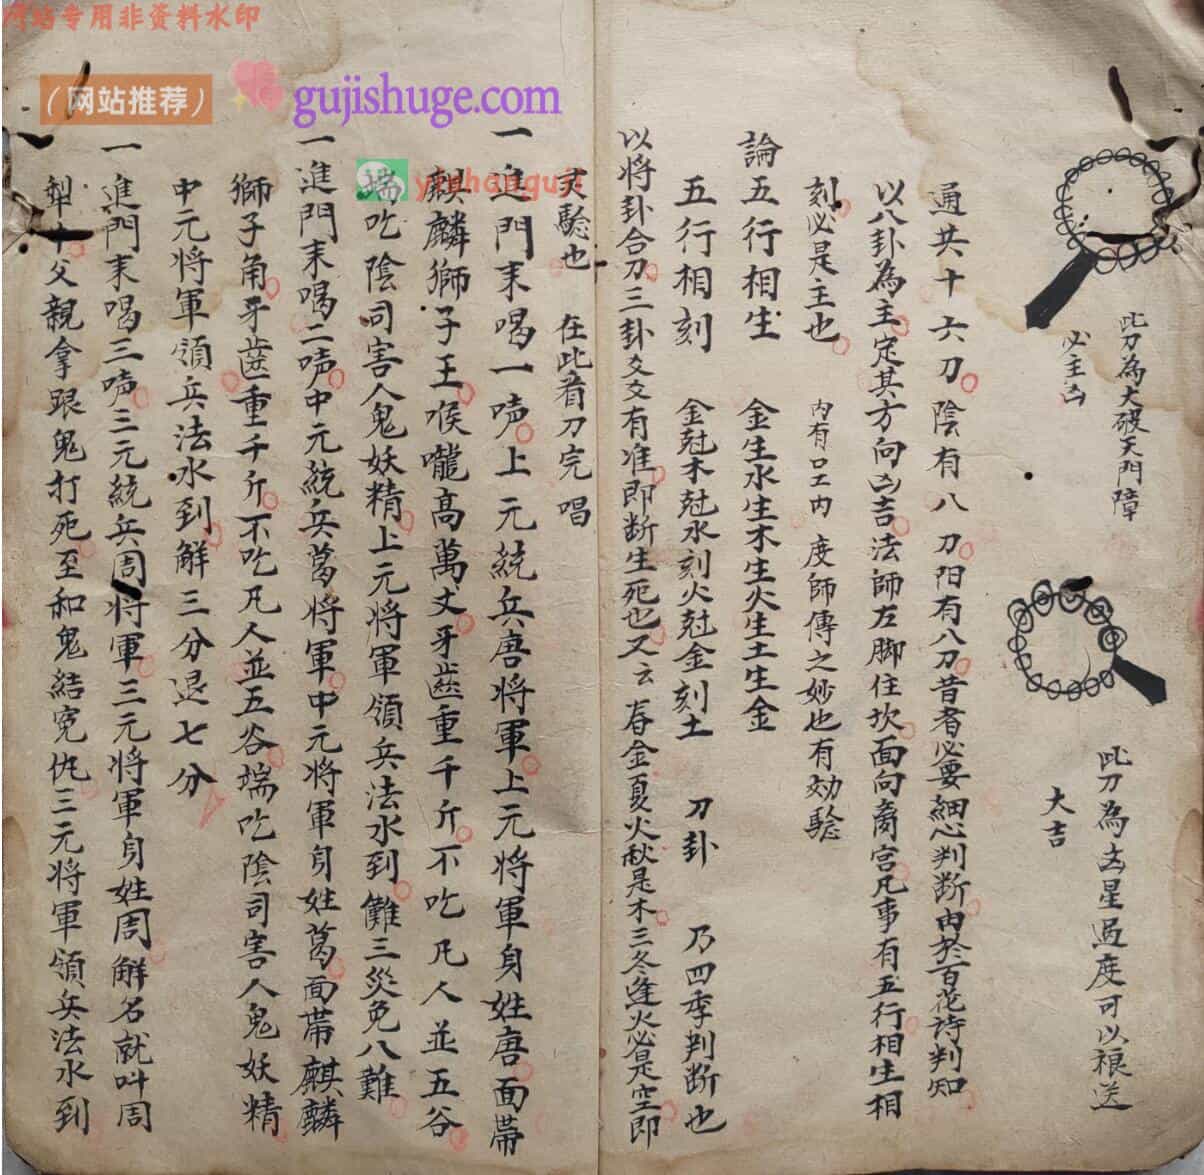 网站专用非资料水印
（网站推荐）
gujishuge.com
yishanguji
此刀為大破天門障
必主凶
此刀為凶星過度可以禳送
大吉
通共十六刀陰有八刀阳有八刀昔者必要細心判断由於百花诗判知
以八卦為主定其方向凶吉法師左脚住坎面向离宫凡事有五行相生相
刻必是主也 内有口工内 度師傳之妙也有効驗
論五行相生 金生水生木生火生土生金
五行相刻 金尅木尅水刻火尅金刻土 刀卦 乃四季判断也
以将卦合刀三卦爻爻有准即断生死也又云 春金夏火秋是木三冬逢火必是空即
実驗也 在此看刀完唱
一進門来喝一声上元統兵唐将軍上元将軍身姓唐面帶
麒麟獅子王喉嚨高萬丈牙齒重千斤不吃凡人並五谷
端吃陰司害人鬼妖精上元将軍領兵法水到 三災免八難
一進門来喝二声中元統兵葛将軍中元将軍身姓葛面帶麒麟
獅子角牙齒重千斤不吃凡人並五谷端吃陰司害人鬼妖精
中元将軍領兵法水到解三分退七分
一進門来喝三声三元統兵周将軍三元将軍身姓周解名就叫周
犁十父親拿跟鬼打死至和鬼結冤仇三元将軍領兵法水到